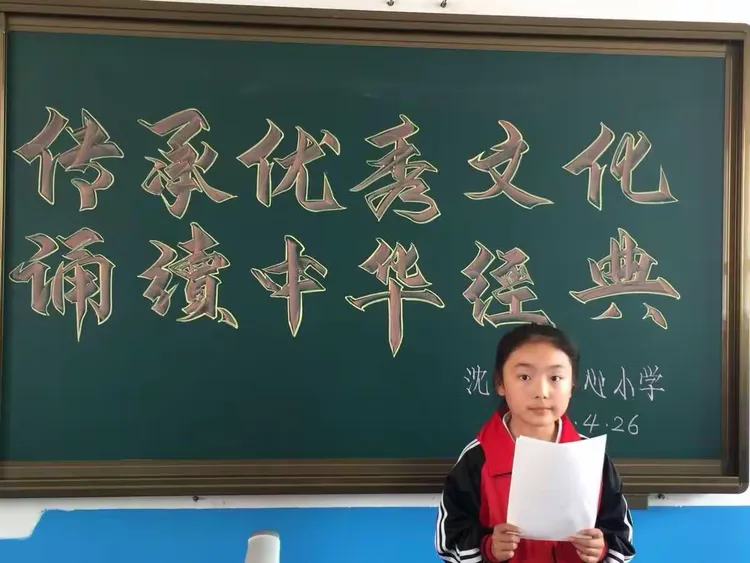 传承优秀文化
诵续中华经典
沈 心小学
.4.26